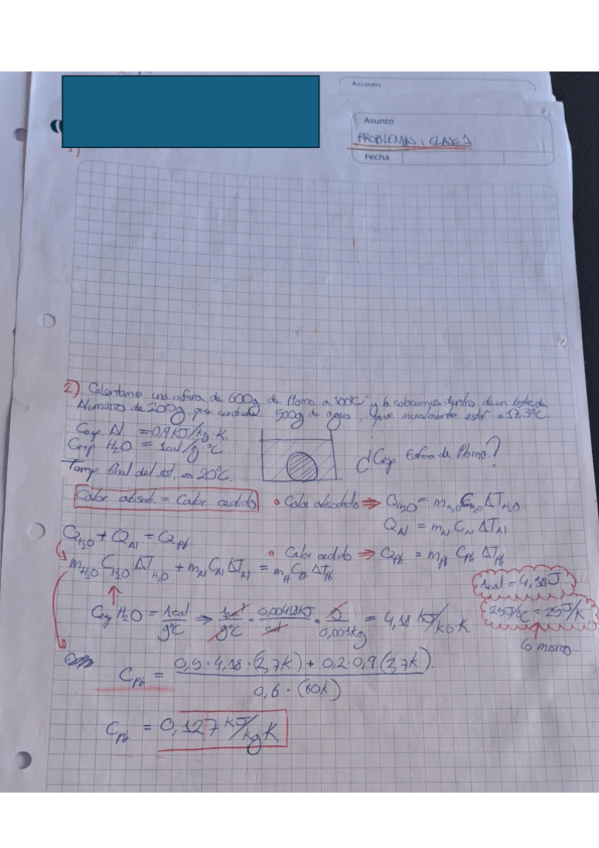 Asunto
Asunto
PROBLEMAS: CLASE 1
Fecha
2) Calentamos una esfera de 600g de Plomo a 100°C y la colocamos dentro de un bote de
Aluminio de 200g, que contiene 500g de agua, que inicialmente está a 17.3°C.
Cesp. Al = 0,9 KJ/kg·K
Cesp H₂O = 1cal/g °C
Temp final del sist. = 20°C.
¿Cesp Esfera de Plomo?
Calor absorb. = Calor cedido
• Calor absorbido ⇒ Q_H₂O = m_H₂O C_H₂O ΔT_H₂O
Q_Al = m_Al C_Al ΔT_Al
Q_H₂O + Q_Al = Q_Pb
• Calor cedido → Q_Pb = m_Pb C_Pb ΔT_Pb
m_H₂O C_H₂O ΔT_H₂O + m_Al C_Al ΔT_Al = m_Pb C_Pb ΔT_Pb
1cal = 4,18J
25J/°C = 25J/K
Lo mismo.
Cesp H₂O = 1cal/g°C ⇒ 1cal/g°C · 0,00418KJ/cal · g/0,001kg = 4,18 KJ/KG·K
C_Pb = 0,5·4,18·(2,7K) + 0,2·0,9(2,7K) / 0,6·(80K)
C_Pb = 0,127 KJ/kg K